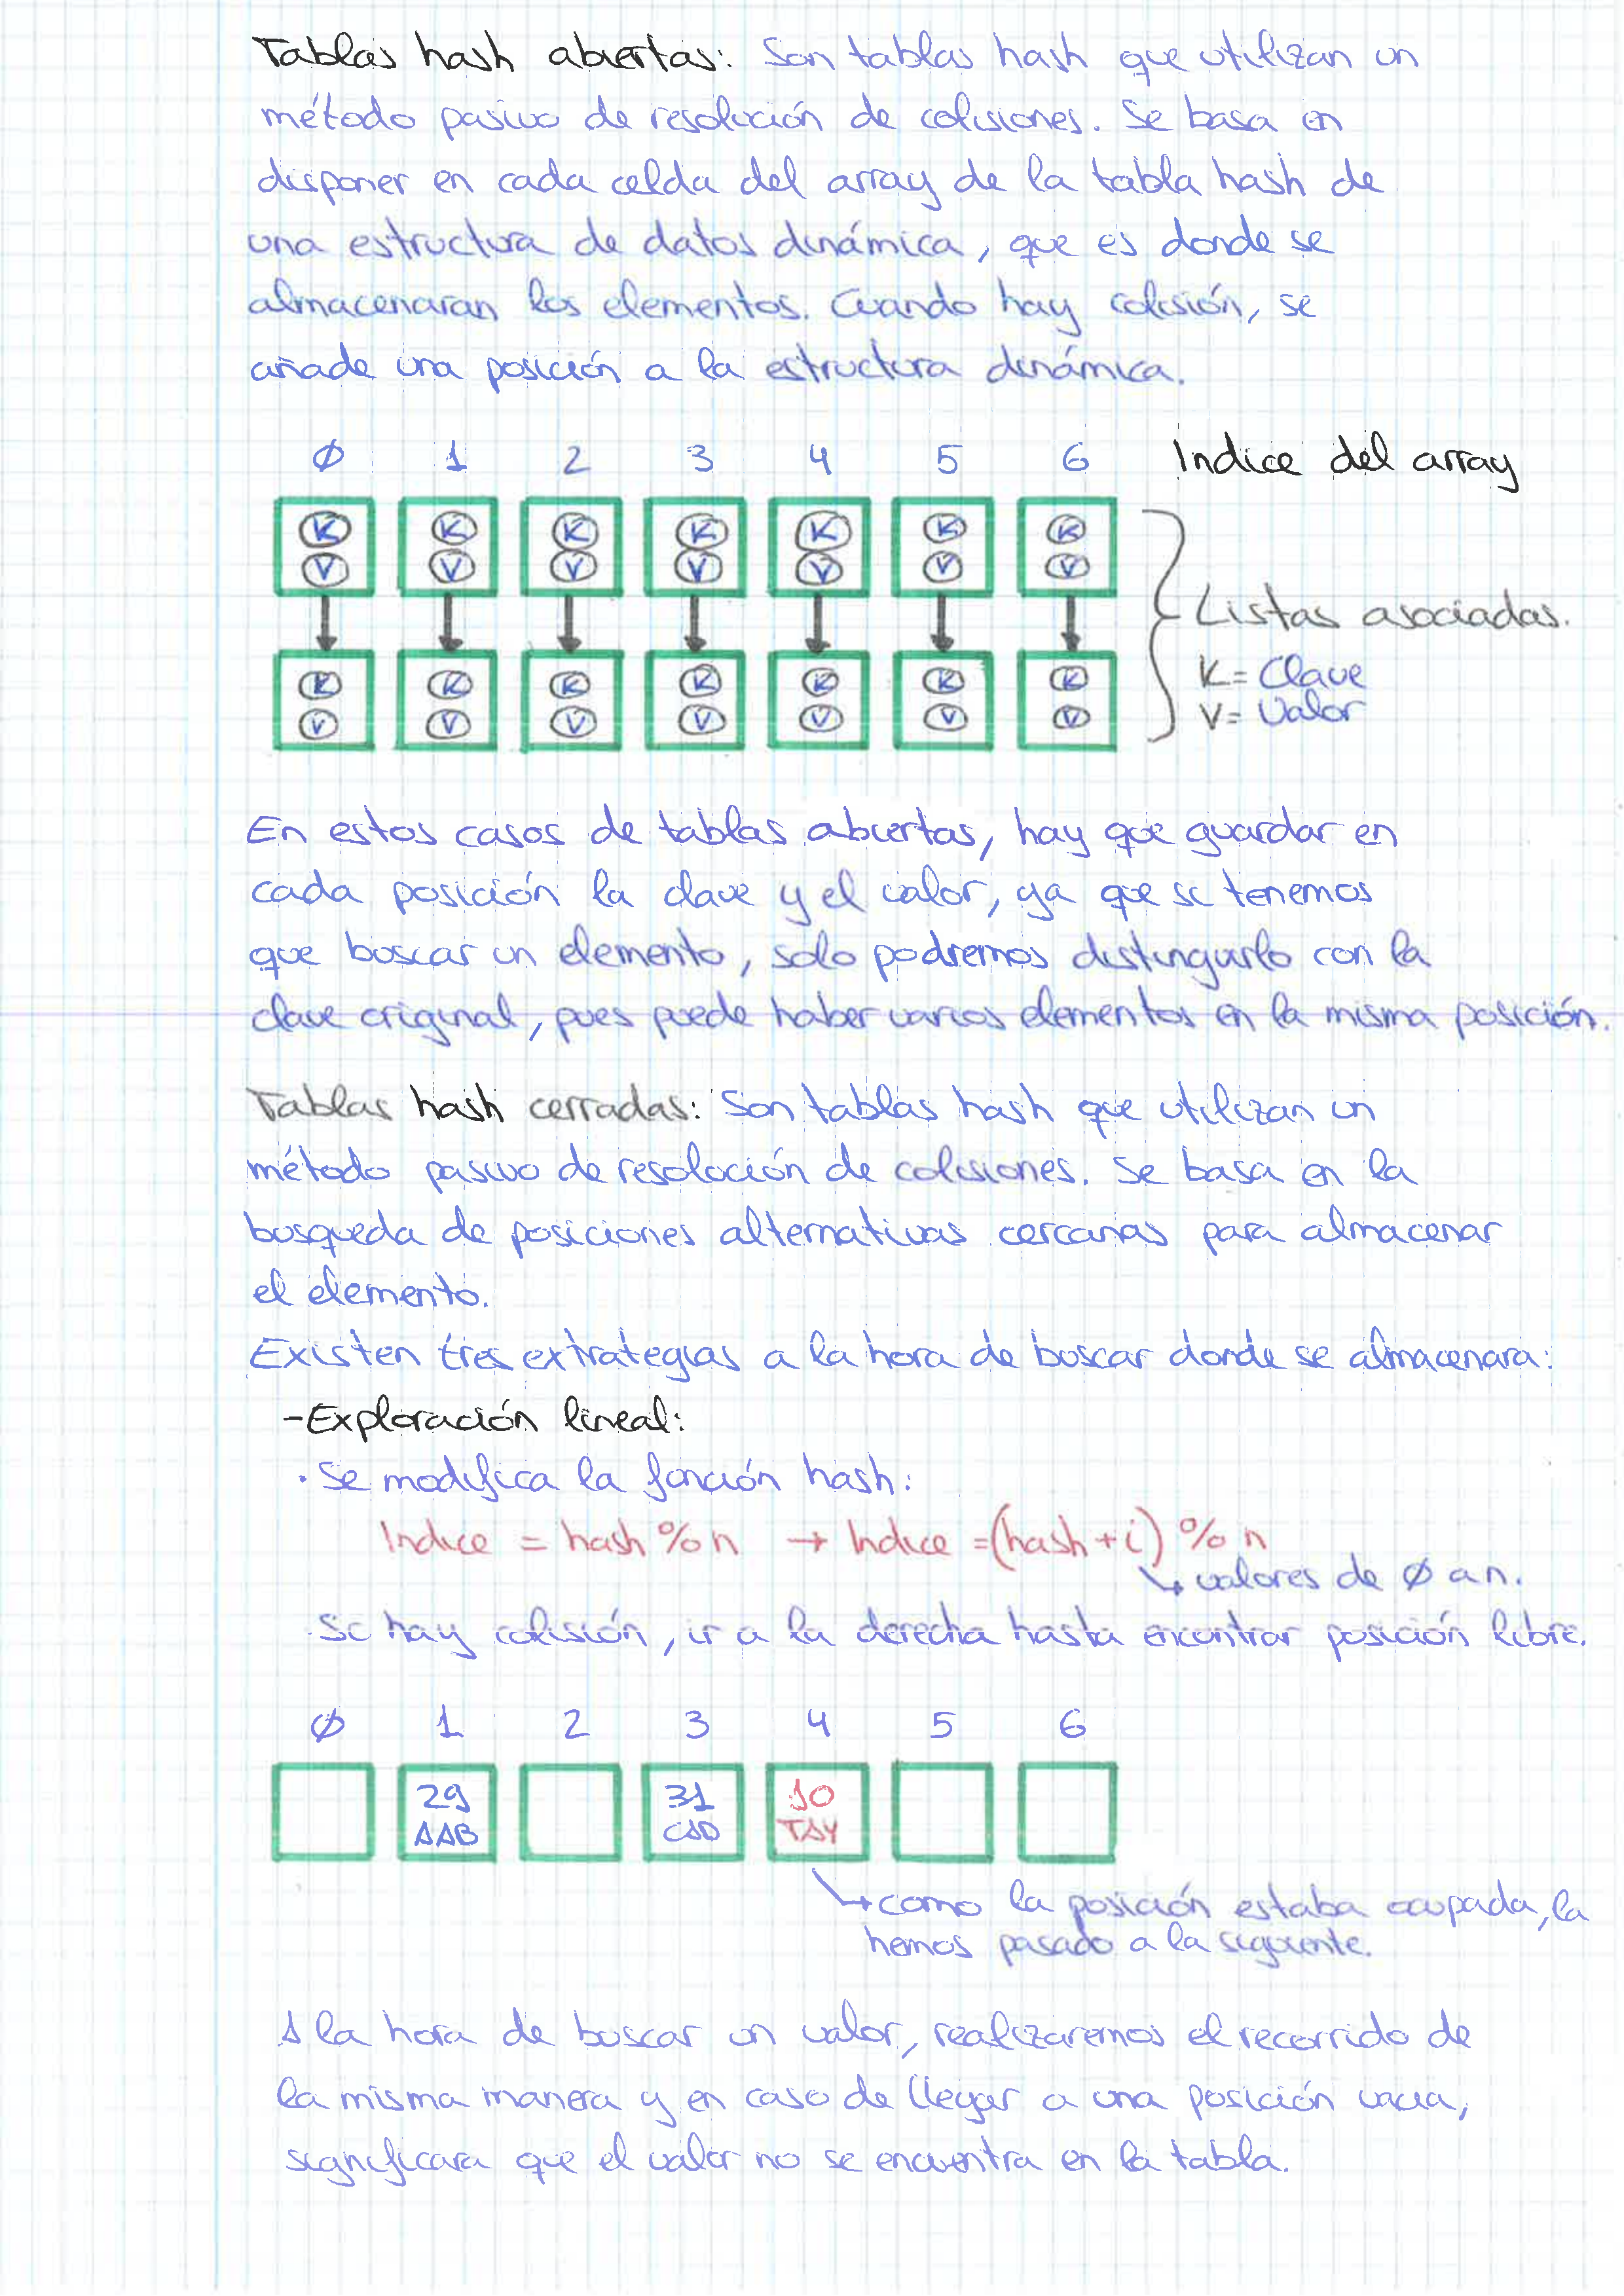 Tablas hash abiertas: Son tablas hash que utilizan un
método pasivo de resolución de colisiones. Se basa en
disponer en cada celda del array de la tabla hash de
una estructura de datos dinámica, que es donde se
almacenaran los elementos. Cuando hay colisión, se
añade una posición a la estructura dinámica.
Ø 1 2 3 4 5 6 Indice del array
K K K K K K K
V V V V V V V
Listas asociadas.
K K K K K K K K = Clave
V V V V V V V V = Valor
En estos casos de tablas abiertas, hay que guardar en
cada posición la clave y el valor, ya que si tenemos
que buscar un elemento, solo podremos distinguirlo con la
clave original, pues puede haber varios elementos en la misma posición.
Tablas hash cerradas: Son tablas hash que utilizan un
método pasivo de resolución de colisiones. Se basa en la
busqueda de posiciones alternativas cercanas para almacenar
el elemento.
Existen tres extrategias a la hora de buscar donde se almacenara:
-Exploración lineal:
· Se modifica la función hash:
Indice = hash % n → Indice = (hash + i) % n
↳ valores de Ø a n.
· Si hay colisión, ir a la derecha hasta encontrar posición libre.
Ø 1 2 3 4 5 6
29 31 10
AAB CAD TAY
↳ como la posición estaba ocupada, la
hemos pasado a la siguiente.
A la hora de buscar un valor, realizaremos el recorrido de
la misma manera y en caso de llegar a una posición vacia,
significara que el valor no se encuentra en la tabla.